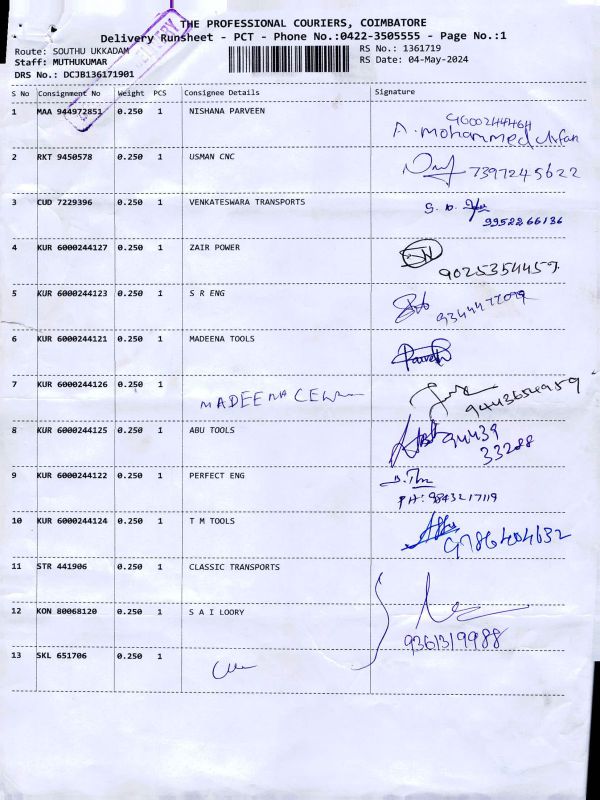 THE PROFESSIONAL COURIERS, COIMBATORE
Delivery Runsheet - PCT - Phone No.:0422-3505555 - Page No.:1
Route: SOUTHU UKKADAM
RS No.: 1361719
Staff: MUTHUKUMAR
RS Date: 04-May-2024
DRS No.: DCJB136171901
DELIVERY
S No Consignment No Weight PCS Consignee Details Signature
1 MAA 944972851 0.250 1 NISHANA PARVEEN
9600244464
A. mohammed irfan
2 RKT 9450578 0.250 1 USMAN CNC 7397245622
3 CUD 7229396 0.250 1 VENKATESWARA TRANSPORTS
9952266136
4 KUR 6000244127 0.250 1 ZAIR POWER
9025354457
5 KUR 6000244123 0.250 1 S R ENG
6 KUR 6000244121 0.250 1 MADEENA TOOLS
7 KUR 6000244126 0.250 1 MADEENA
9443654959
8 KUR 6000244125 0.250 1 ABU TOOLS 94439
33288
9 KUR 6000244122 0.250 1 PERFECT ENG
PH: 9843217119
10 KUR 6000244124 0.250 1 T M TOOLS 9786404632
11 STR 441906 0.250 1 CLASSIC TRANSPORTS
12 KON 80068120 0.250 1 S A I LOORY
9361319988
13 SKL 651706 0.250 1